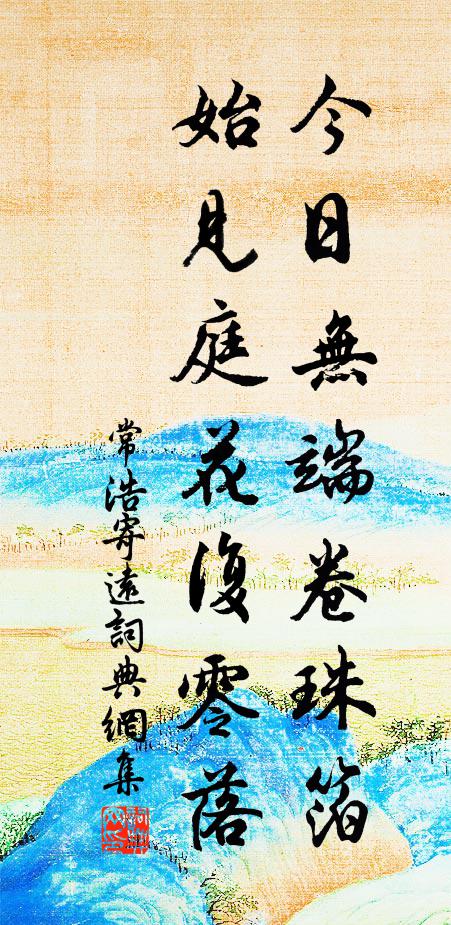 今日無端卷珠箔
始見庭花復零落
常浩寄遠詞典網集